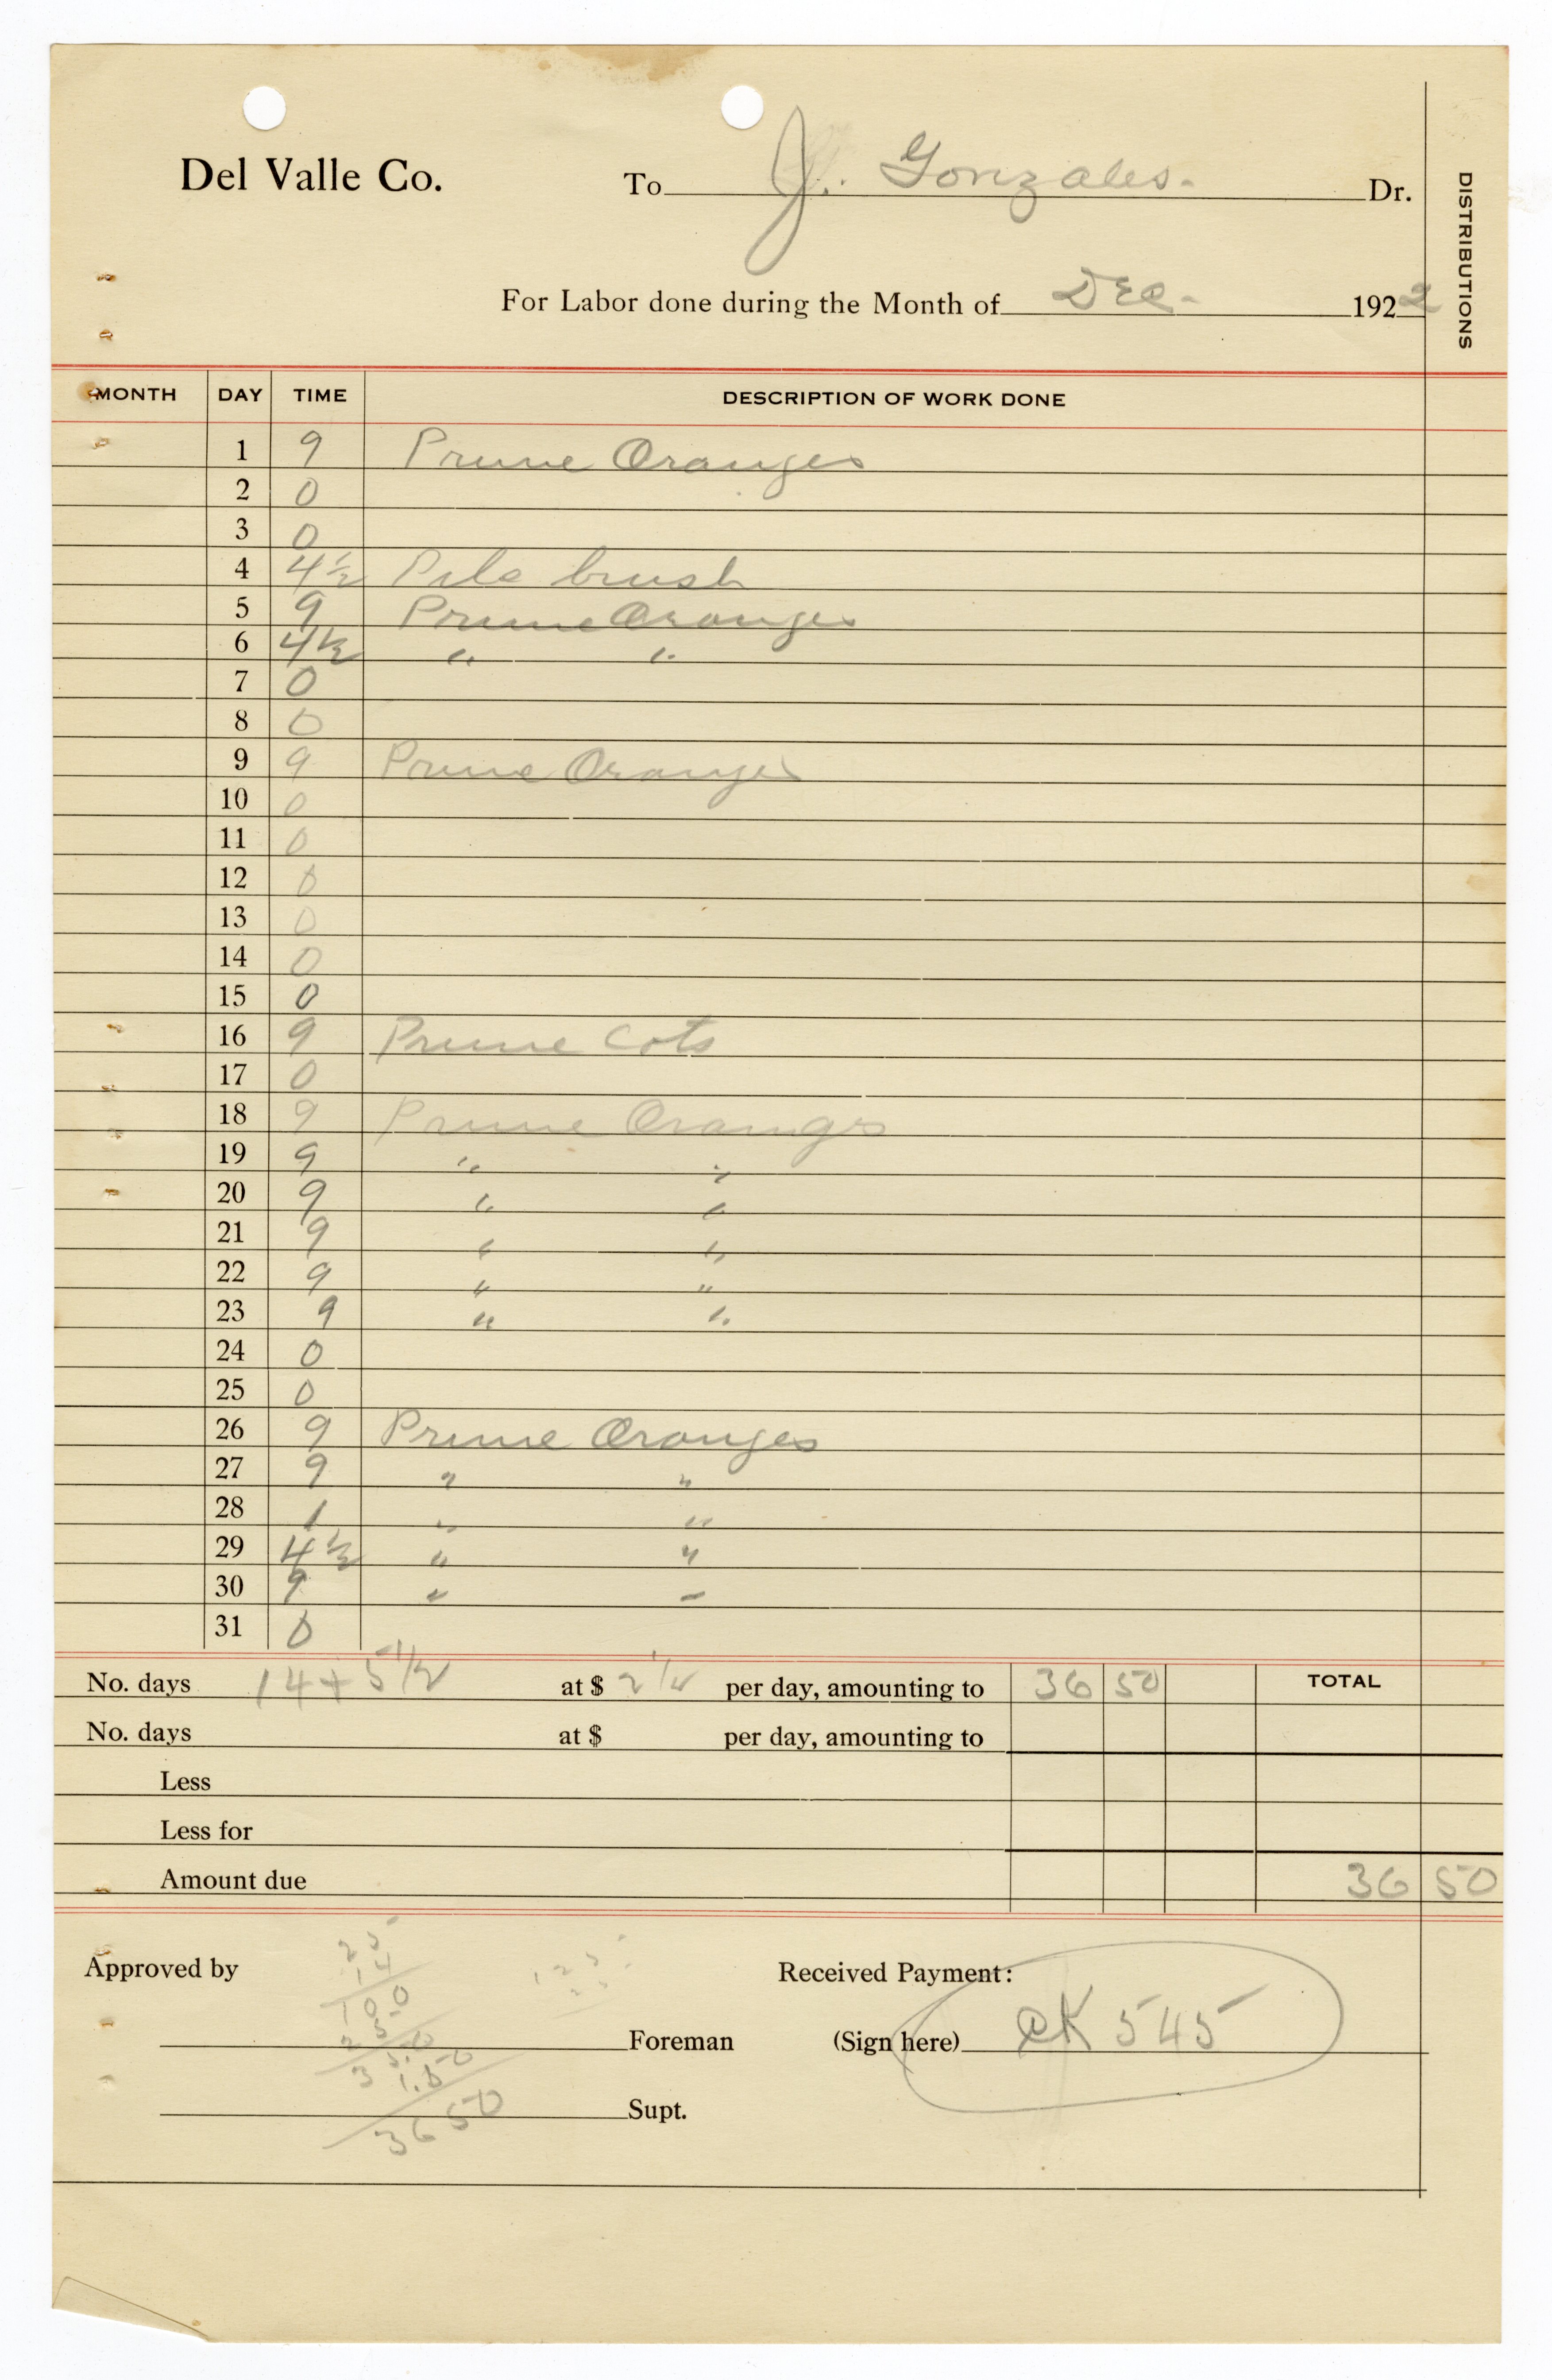 Del Valle Co. To J. Gonzales. Dr.
DISTRIBUTIONS
For Labor done during the Month of Dec. 1922
MONTH DAY TIME DESCRIPTION OF WORK DONE
1 9 Prune Oranges
2 0
3 0
4 4½ Pile brush
5 9 Prune Oranges
6 4½ " "
7 0
8 0
9 9 Prune Oranges
10 0
11 0
12 0
13 0
14 0
15 0
16 9 Prune Cots
17 0
18 9 Prune Oranges
19 9 " "
20 9 " "
21 9 " "
22 9 " "
23 9 " "
24 0
25 0
26 9 Prune Oranges
27 9 " "
28 1 " "
29 4½ " "
30 9 " "
31 0
No. days 14 + 5½ at $ 2½ per day, amounting to 36 50 TOTAL
No. days at $ per day, amounting to
Less
Less for
Amount due 36 50
Approved by
Received Payment:
25
14
100
25
35.0
1.50
3650
Foreman
(Sign here) CK 545
Supt.